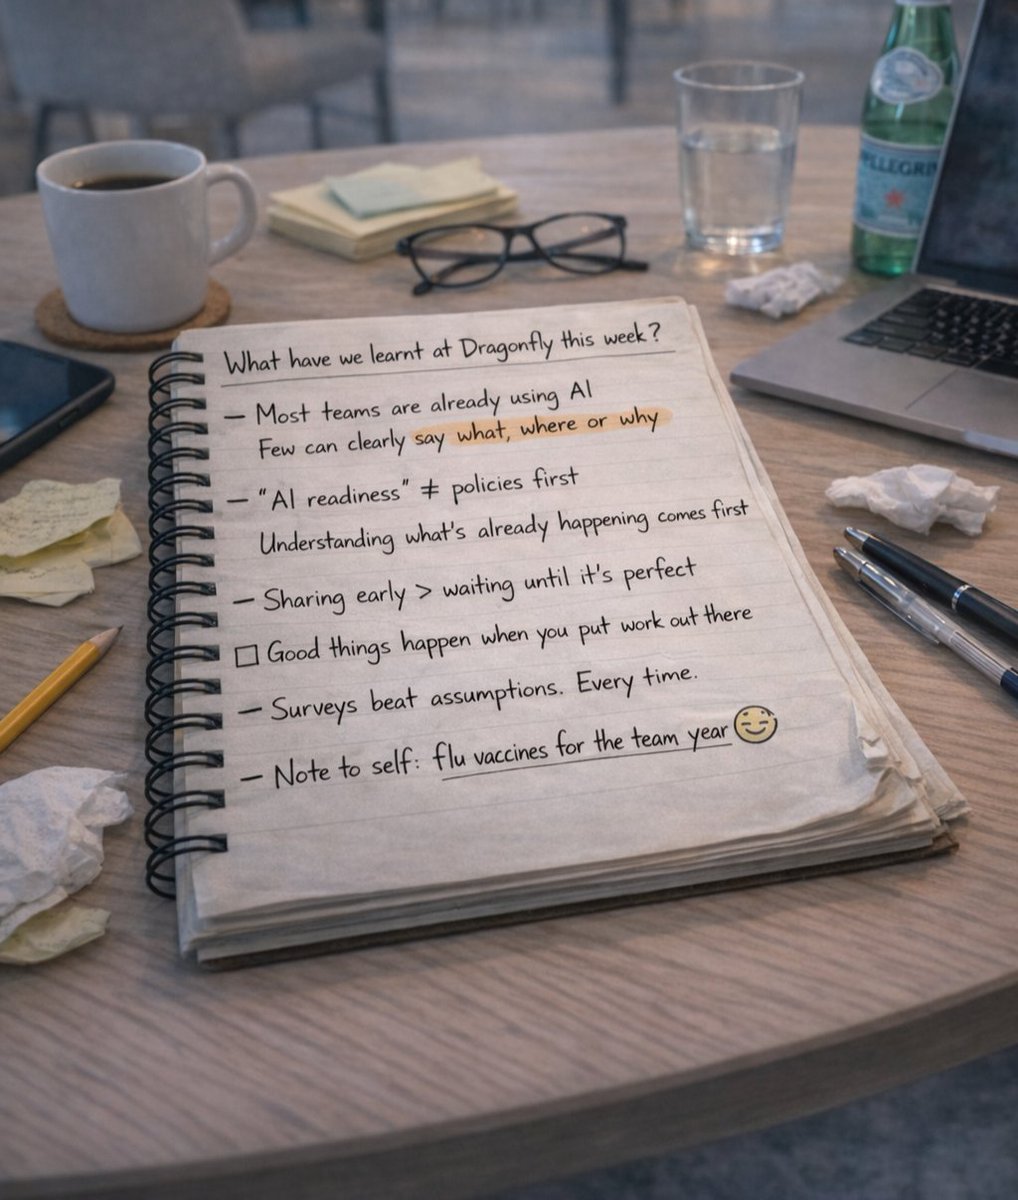 What have we learnt at Dragonfly this week?
— Most teams are already using AI
Few can clearly say what, where or why
— "AI readiness" ≠ policies first
Understanding what's already happening comes first
— Sharing early > waiting until it's perfect
☐ Good things happen when you put work out there
— Surveys beat assumptions. Every time.
— Note to self: flu vaccines for the team year